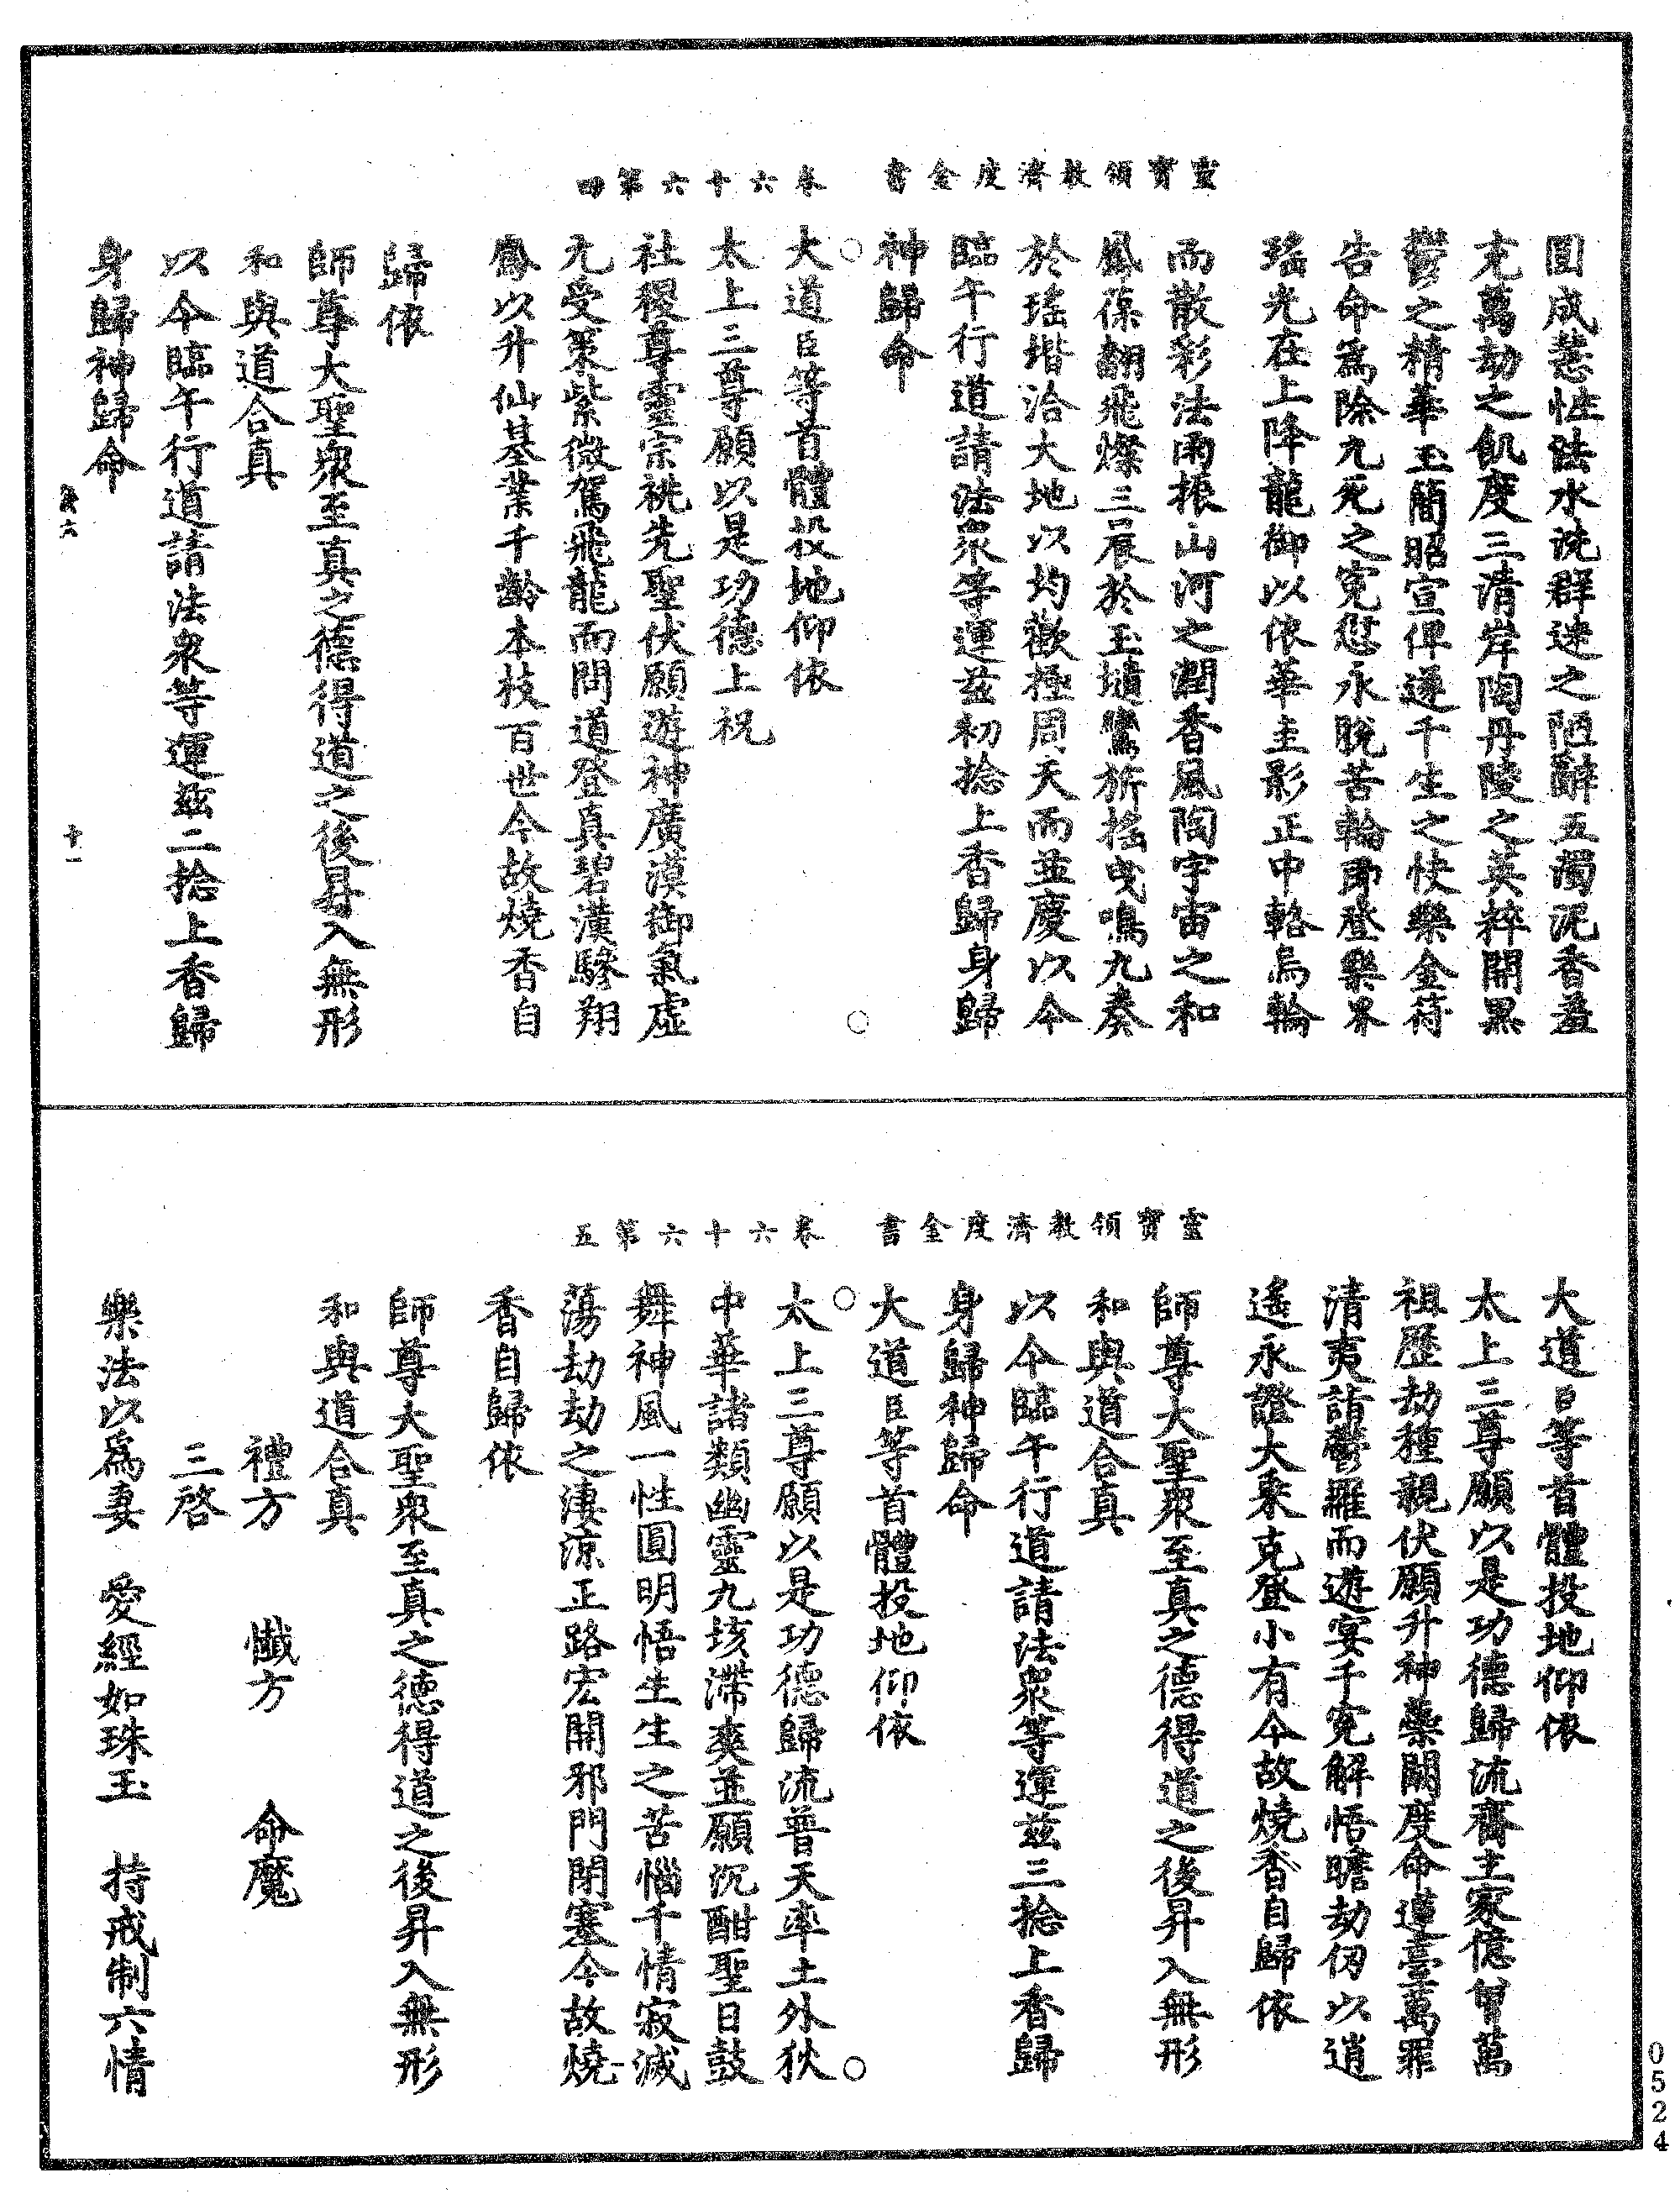 靈寶領教濟度金書 卷六十六第四
圓成慧性法水洗群迷之陋辭五濁泥香羞
充萬劫之飢度三清岸陶丹陵之英粹開黑
鬱之精華玉簡昭宣俾遂千生之快樂金符
告命為除九死之冤愆永脫苦輪即登樂界
瑤光在上降龍御以依華圭影正中輅烏輪
而散彩法雨振山河之潤香風陶宇宙之和
鳳葆翻飛燦三辰於玉墳鸞旂搖曳鳴九奏
於瑤堦洽大地以均歡極周天而並慶以今
臨午行道請法眾等運茲初捻上香歸身歸
神歸命
大道臣等首體投地仰依
太上三尊願以是功德上祝
社稷尊靈宗祧先聖伏願遊神廣漠御氣虛
九受策紫微駕飛龍而問道登真碧漢驂翔
鳳以升仙基業千齡本枝百世今故燒香自
歸依
師尊大聖眾至真之德得道之後昇入無形
和與道合真
以今臨午行道請法眾等運茲二捻上香歸
身歸神歸命
六 十一
靈寶領教濟度金書 卷六十六第五
大道臣等首體投地仰依
太上三尊願以是功德歸流齋主家億曾萬
祖歷劫種親伏願升神藥闕度命蓮臺萬罪
清夷詣鬱羅而遊宴千冤解悟瞻劫仞以逍
遙永證大乘克登小有今故燒香自歸依
師尊大聖眾至真之德得道之後昇入無形
和與道合真
以今臨午行道請法眾等運茲三捻上香歸
身歸神歸命
大道臣等首體投地仰依
太上三尊願以是功德歸流普天率土外狄
中華諸類幽靈九垓滯爽並願沉酣聖日鼓
舞神風一性圓明悟生生之苦惱千情寂滅
蕩劫劫之淒涼正路宏開邪門閉塞今故燒
香自歸依
師尊大聖眾至真之德得道之後昇入無形
和與道合真
禮方 懺方 命魔
三啓
樂法以為妻 愛經如珠玉 持戒制六情
0524